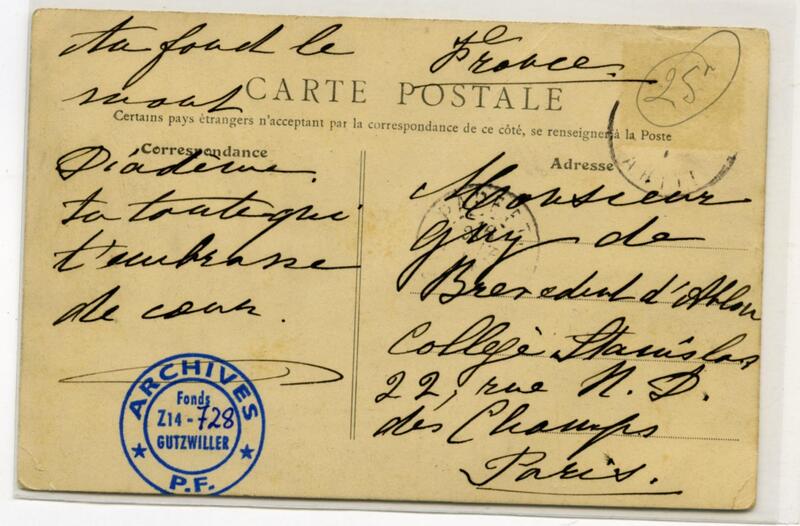 Au fond le
mont
Diadème.
Ta tante qui
t'embrasse
de cœur.
France.
CARTE POSTALE
Certains pays étrangers n'acceptent par la correspondance de ce côté, se renseigner à la Poste
Correspondance
Adresse
25
Monsieur
Guy de
Brevedent d'Ablon
Collège Stanislas
22, rue N. D.
des Champs
Paris.
PAPEETE
TAHITI
ARCHIVES
Fonds
Z14 - 728
GUTZWILLER
P.F.